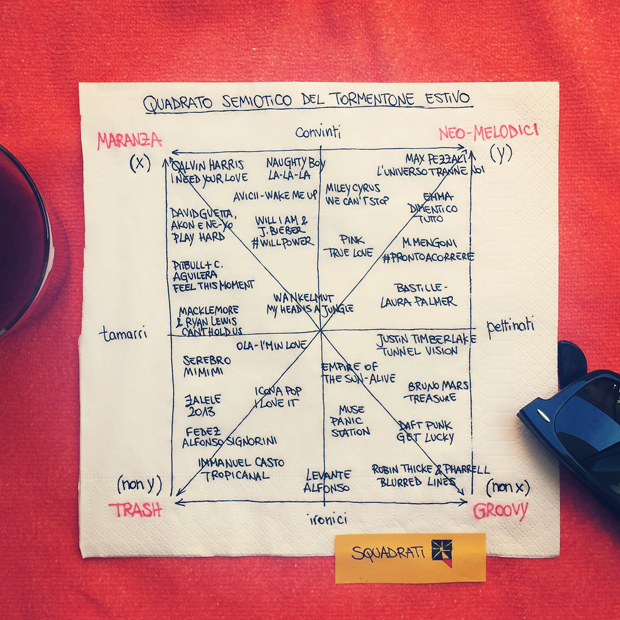 QUADRATO SEMIOTICO DEL TORMENTONE ESTIVO
convinti
MARANZA
NEO-MELODICI
(x)
(y)
CALVIN HARRIS
I NEED YOUR LOVE
NAUGHTY BOY
LA-LA-LA
MAX PEZZALI
L'UNIVERSO TRANNE NOI
AVICII-WAKE ME UP
MILEY CYRUS
WE CAN'T STOP
EMMA
DIMENTICO
TUTTO
DAVID GUETTA,
AKON E NE-YO
PLAY HARD
WILL I AM &
J. BIEBER
#WILLPOWER
PINK
TRUE LOVE
M. MENGONI
#PRONTOACORRERE
PITBULL + C.
AGUILERA
FEEL THIS MOMENT
BASTILLE-
LAURA PALMER
WANKELMUT
MY HEAD IS A JUNGLE
MACKLEMORE
& RYAN LEWIS
CAN'T HOLD US
tamarri
pettinati
OLA-I'M IN LOVE
JUSTIN TIMBERLAKE
TUNNEL VISION
SEREBRO
MIMIMI
EMPIRE OF
THE SUN-ALIVE
ICONA POP
I LOVE IT
BRUNO MARS
TREASURE
ZALELE
2013
MUSE
PANIC
STATION
FEDEZ
ALFONSO SIGNORINI
DAFT PUNK
GET LUCKY
IMMANUEL CASTO
TROPICANAL
LEVANTE
ALFONSO
ROBIN THICKE & PHARRELL
BLURRED LINES
(non y)
(non x)
TRASH
GROOVY
ironici
SQUADRATI